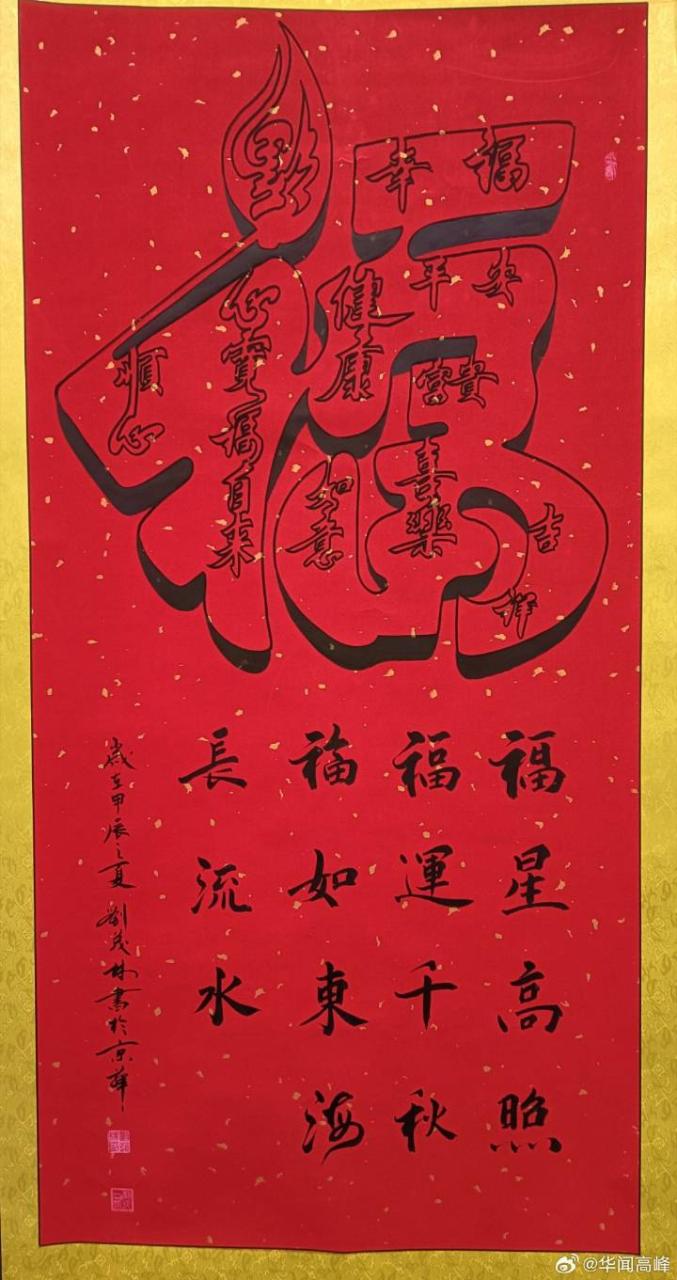 福
幸福
平安
健康
富貴
順心
心寬福自来
如意
喜樂
吉祥
福星高照
福運千秋
福如東海
長流水
歲在甲辰之夏 劉茂林書於京華
@华闻高峰